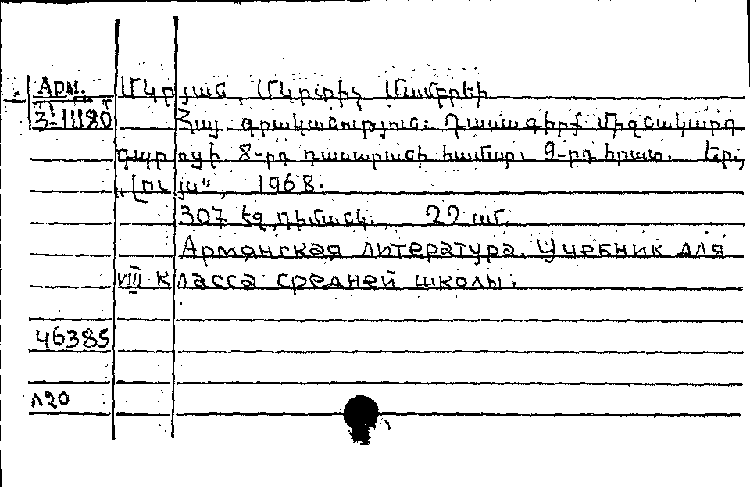 Арм. Մկրյան, Մկրտիչ Մամբրեի
3-11180 Հայ գրականություն: Դասագիրք միջնակարգ
դպրոցի 8-րդ դասարանի համար: 9-րդ հրատ. Երև.
„Լույս", 1968.
307 էջ, դիմանկ. 22 սմ.
Армянская литература. Учебник для
VIII класса средней школы.
46385
л20